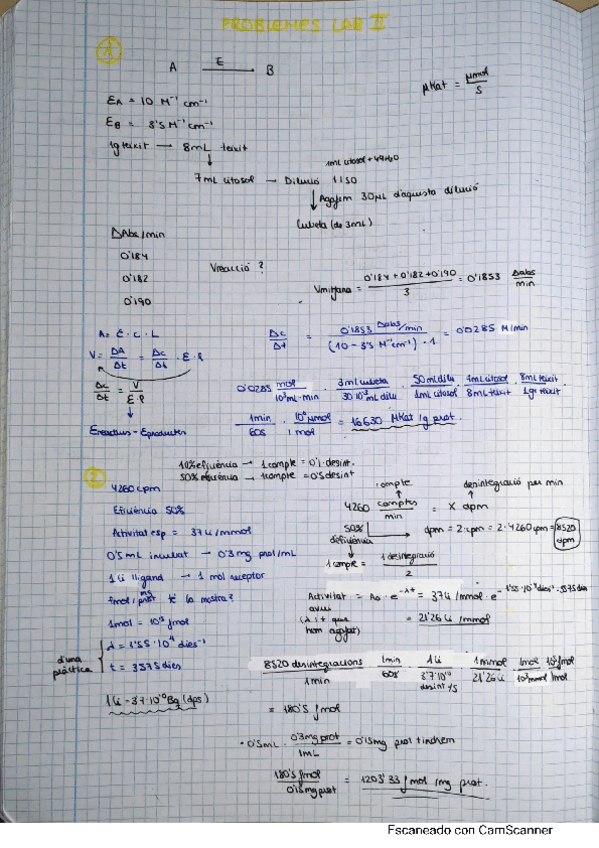 PROBLEMES LAB II
1
A E → B
μkat = μmol / s
εA = 10 M⁻¹ cm⁻¹
εB = 3'5 M⁻¹ cm⁻¹
1g teixit → 8mL teixit
↓
7mL citosol → Dilució 1/50
1mL citosol + 49 H2O
↓ Agafem 30μL d'aquesta dilució
Cubeta (de 3mL)
ΔAbs/min
0'184
0'182
0'190
Vreacció ?
Vmitjana = 0'184 + 0'182 + 0'190 / 3 = 0'1853 Δabs / min
A = ε · c · L
V = ΔA / Δt = Δc / Δt · ε · l
Δc / Δt = V / ε · l
Ereactius - Eproductes
Δc / Δt = 0'1853 Δabs/min / (10 - 3'5 M⁻¹cm⁻¹) · 1 = 0'0285 M/min
0'0285 mol / 10³mL · min · 3mL cubeta / 30·10⁻³mL dilu · 50mL dilu / 1mL citosol · 7mL citosol / 8mL teixit · 8mL teixit / 1g teixit
1min / 60s · 10⁶ μmol / 1 mol = 16630 μkat /g prot.
2
10% eficiència → 1 compte = 0'1 desint.
50% eficiència → 1 compte = 0'5 desint
4260 cpm
Eficiència 50%
Activitat esp = 37 Ci/mmol
0'5 mL incubat → 0'3 mg prot/mL
1 Ci lligand → 1 mol receptor
fmol/mg prot té la mostra?
1mol = 10¹⁵ fmol
d'una pràctica
λ = 1'55 · 10⁻⁴ dies⁻¹
t = 3575 dies
1 Ci = 3'7·10¹⁰ Bq (dps)
compte
desintegració per min
4260 comptes / min = X dpm
50% d'eficiència
dpm = 2·cpm = 2·4260 cpm = 8520 dpm
1 compte = 1 desintegració / 2
Activitat avui = A₀ · e^-λt = 37Ci/mmol · e^-1'55·10⁻⁴ dies⁻¹ · 3575 dies
(λ i t que hem agafat)
= 21'26 Ci/mmol
8520 desintegracions / 1min · 1min / 60s · 1Ci / 3'7·10¹⁰ desint/s · 1mmol / 21'26Ci · 1mol / 10³mmol · 10¹⁵ fmol / 1mol
= 180'5 fmol
· 0'5mL · 0'3mg prot / 1mL = 0'15mg prot tindrem
180'5 fmol / 0'15mg prot = 1203'33 fmol /mg prot.
Escaneado con CamScanner